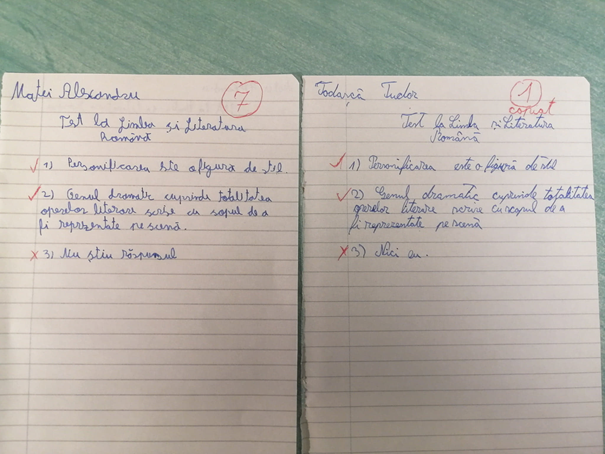 Matei Alexandru
7
Test la Limba și Literatura
Română
1) Personificarea este o figură de stil.
2) Genul dramatic cuprinde totalitatea
operelor literare scrise cu scopul de a
fi reprezentate pe scenă.
3) Nu știu răspunsul
Todașcă Tudor
1
copiat
Test la Limba și Literatura
Română
1) Personificarea este o figură de stil
2) Genul dramatic cuprinde totalitatea
operelor literare scrise cu scopul de a
fi reprezentate pe scenă
3) Nici eu.